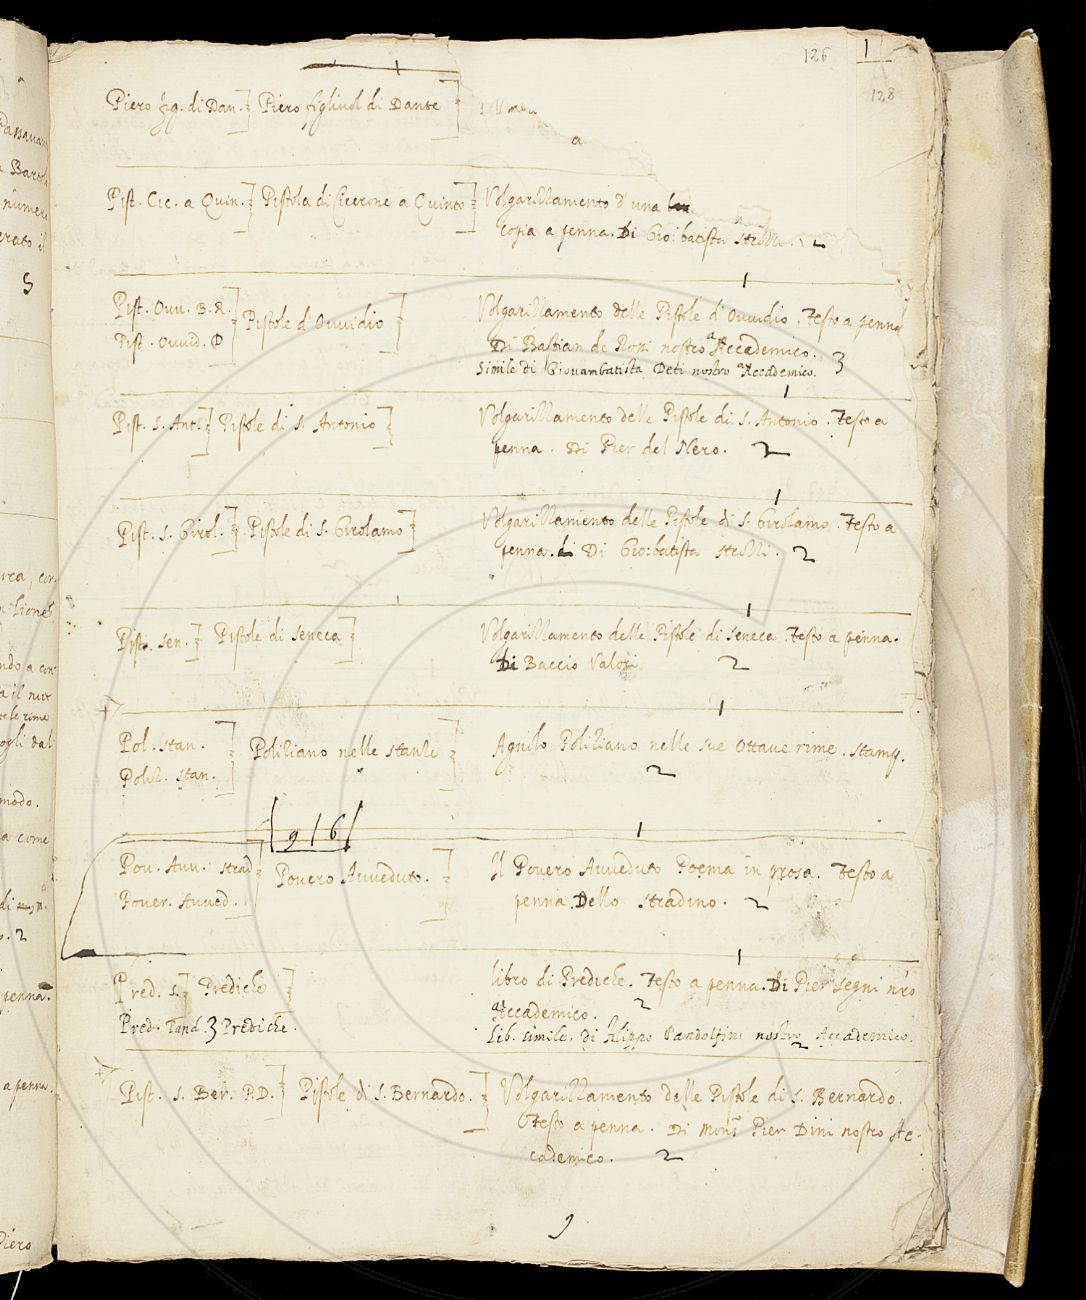 126
1
128
Piero fig. di Dan. ] Piero figliuol di Dante ]
a
Pist. Cic. a Quin. ] Pistola di Cicerone a Quinto ] Volgarizzamento d'una
copia a penna. Di Gio: batista Strozzi. 2
1
Pist. Ouu. B.R. ] Pistole d'Ouuidio ] Volgarizzamento delle Pistole d'Ouuidio. Testo a penna
Pist. Ouuid. D ] Di Bastian de Rossi nostro Accademico. 3
Simile di Giouambatista Deti nostro Accademico.
1
Pist. S. Ant. ] Pistole di S. Antonio ] Volgarizzamento delle Pistole di S. Antonio. Testo a
penna. Di Pier del Nero. 2
1
Pist. S. Girol. ] Pistole di S. Girolamo ] Volgarizzamento delle Pistole di S. Girolamo. Testo a
penna. Di Gio: batista Strozzi. 2
1
Pist. Sen. ] Pistole di Seneca ] Volgarizzamento delle Pistole di Seneca. Testo a penna.
Di Baccio Valori. 2
1
Pol. stan. ] Poliziano nelle stanze ] Agnolo Poliziano nelle sue ottaue rime. stamp.
Poliz. stan. ] 2
916
1
Pou. Auu. Strad ] Pouero Auueduto. ] Il Pouero Auueduto Poema in prosa. Testo a
Pouer. Auued. ] penna. Dello Stradino. 2
1
Pred. S. ] Prediche ] Libro di Prediche. Testo a penna. Di Pier Segni nro
Accademico. 2
Pred. Pand. ] Prediche. Lib. simile. Di Filippo Pandolfini nostro Accademico.
2
Pist. S. Ber. P.D. ] Pistole di S. Bernardo. ] Volgarizzamento delle Pistole di S. Bernardo.
Testo a penna. Di Mons. Pier Dini nostro Ac-
cademico. 2